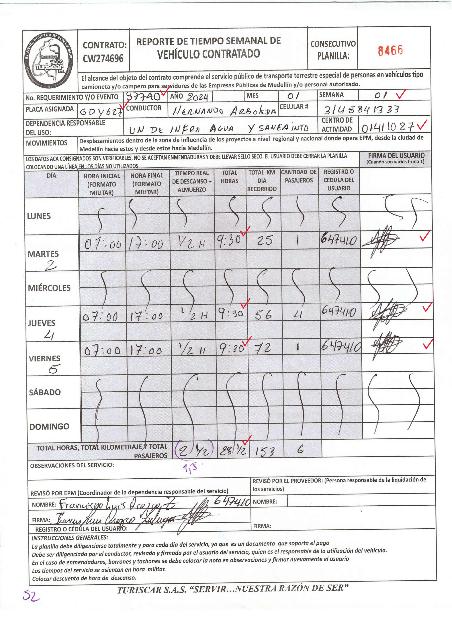 CONTRATO:
CW274696
REPORTE DE TIEMPO SEMANAL DE
VEHÍCULO CONTRATADO
CONSECUTIVO
PLANILLA:
8466
El alcance del objeto del contrato comprende el servicio público de transporte terrestre especial de personas en vehículos tipo
camioneta y/o campero para servidores de las Empresas Públicas de Medellín y/o personal autorizado.
No. REQUERIMIENTO Y/O EVENTO 37790 AÑO 2024 MES 01 SEMANA 01
PLACA ASIGNADA GDY627 CONDUCTOR HERNANDO ARBOLEDA CELULAR # 3145841333
DEPENDENCIA RESPONSABLE
DEL USO: UN DE INFRA AGUA Y SANEA INTO CENTRO DE
ACTIVIDAD 0141027
MOVIMIENTOS Desplazamientos dentro de la zona de influencia de los proyectos a nivel regional y nacional donde opera EPM, desde la ciudad de
Medellín hacia estos y desde estos hacia Medellín.
LOS DATOS ACA CONSIGNADOS SON VERIFICABLES. NO SE ACEPTAN ENMENDADURAS Y DEBE LLEVAR SELLO SECO. EL USUARIO DEBE CERRAR LA PLANILLA
COLOCANDO UNA LÍNEA EN LOS DÍAS NO UTILIZADOS
FIRMA DEL USUARIO
DÍA HORA INICIAL (FORMATO MILITAR) HORA FINAL (FORMATO MILITAR) TIEMPO REAL DE DESCANSO - ALMUERZO TOTAL HORAS TOTAL KM DIA RECORRIDO CANTIDAD DE PASAJEROS REGISTRO O CÉDULA DEL USUARIO
LUNES
MARTES 2 07:00 17:00 1/2 H 9:30 25 1 647410
MIÉRCOLES
JUEVES 4 07:00 17:00 1/2 H 9:30 56 4 647410
VIERNES 5 07:00 17:00 1/2 H 9:30 72 1 647410
SÁBADO
DOMINGO
TOTAL HORAS, TOTAL KILOMETRAJE / TOTAL
PASAJEROS 28 1/2 153 6
1,5
OBSERVACIONES DEL SERVICIO:
REVISÓ POR EPM (Coordinador de la dependencia responsable del servicio)
REVISÓ POR EL PROVEEDOR: (Persona responsable de la liquidación de
los servicios)
NOMBRE: Francisco Luis 647410 NOMBRE:
FIRMA: FIRMA:
REGISTRO O CÉDULA DEL USUARIO:
INSTRUCCIONES GENERALES:
La planilla debe diligenciarse totalmente y para cada día del servicio, ya que es un documento que soporta el pago
Debe ser diligenciado por el conductor, revisado y firmado por el usuario del servicio, quien es el responsable de la utilización del vehículo.
En el caso de enmendaduras, borrones y tachones se debe colocar la nota en observaciones y firmar nuevamente el usuario
Los tiempos del servicio se asientan en hora militar.
Colocar descuento de hora de descanso.
TURISCAR S.A.S. "SERVIR...NUESTRA RAZÓN DE SER"
52